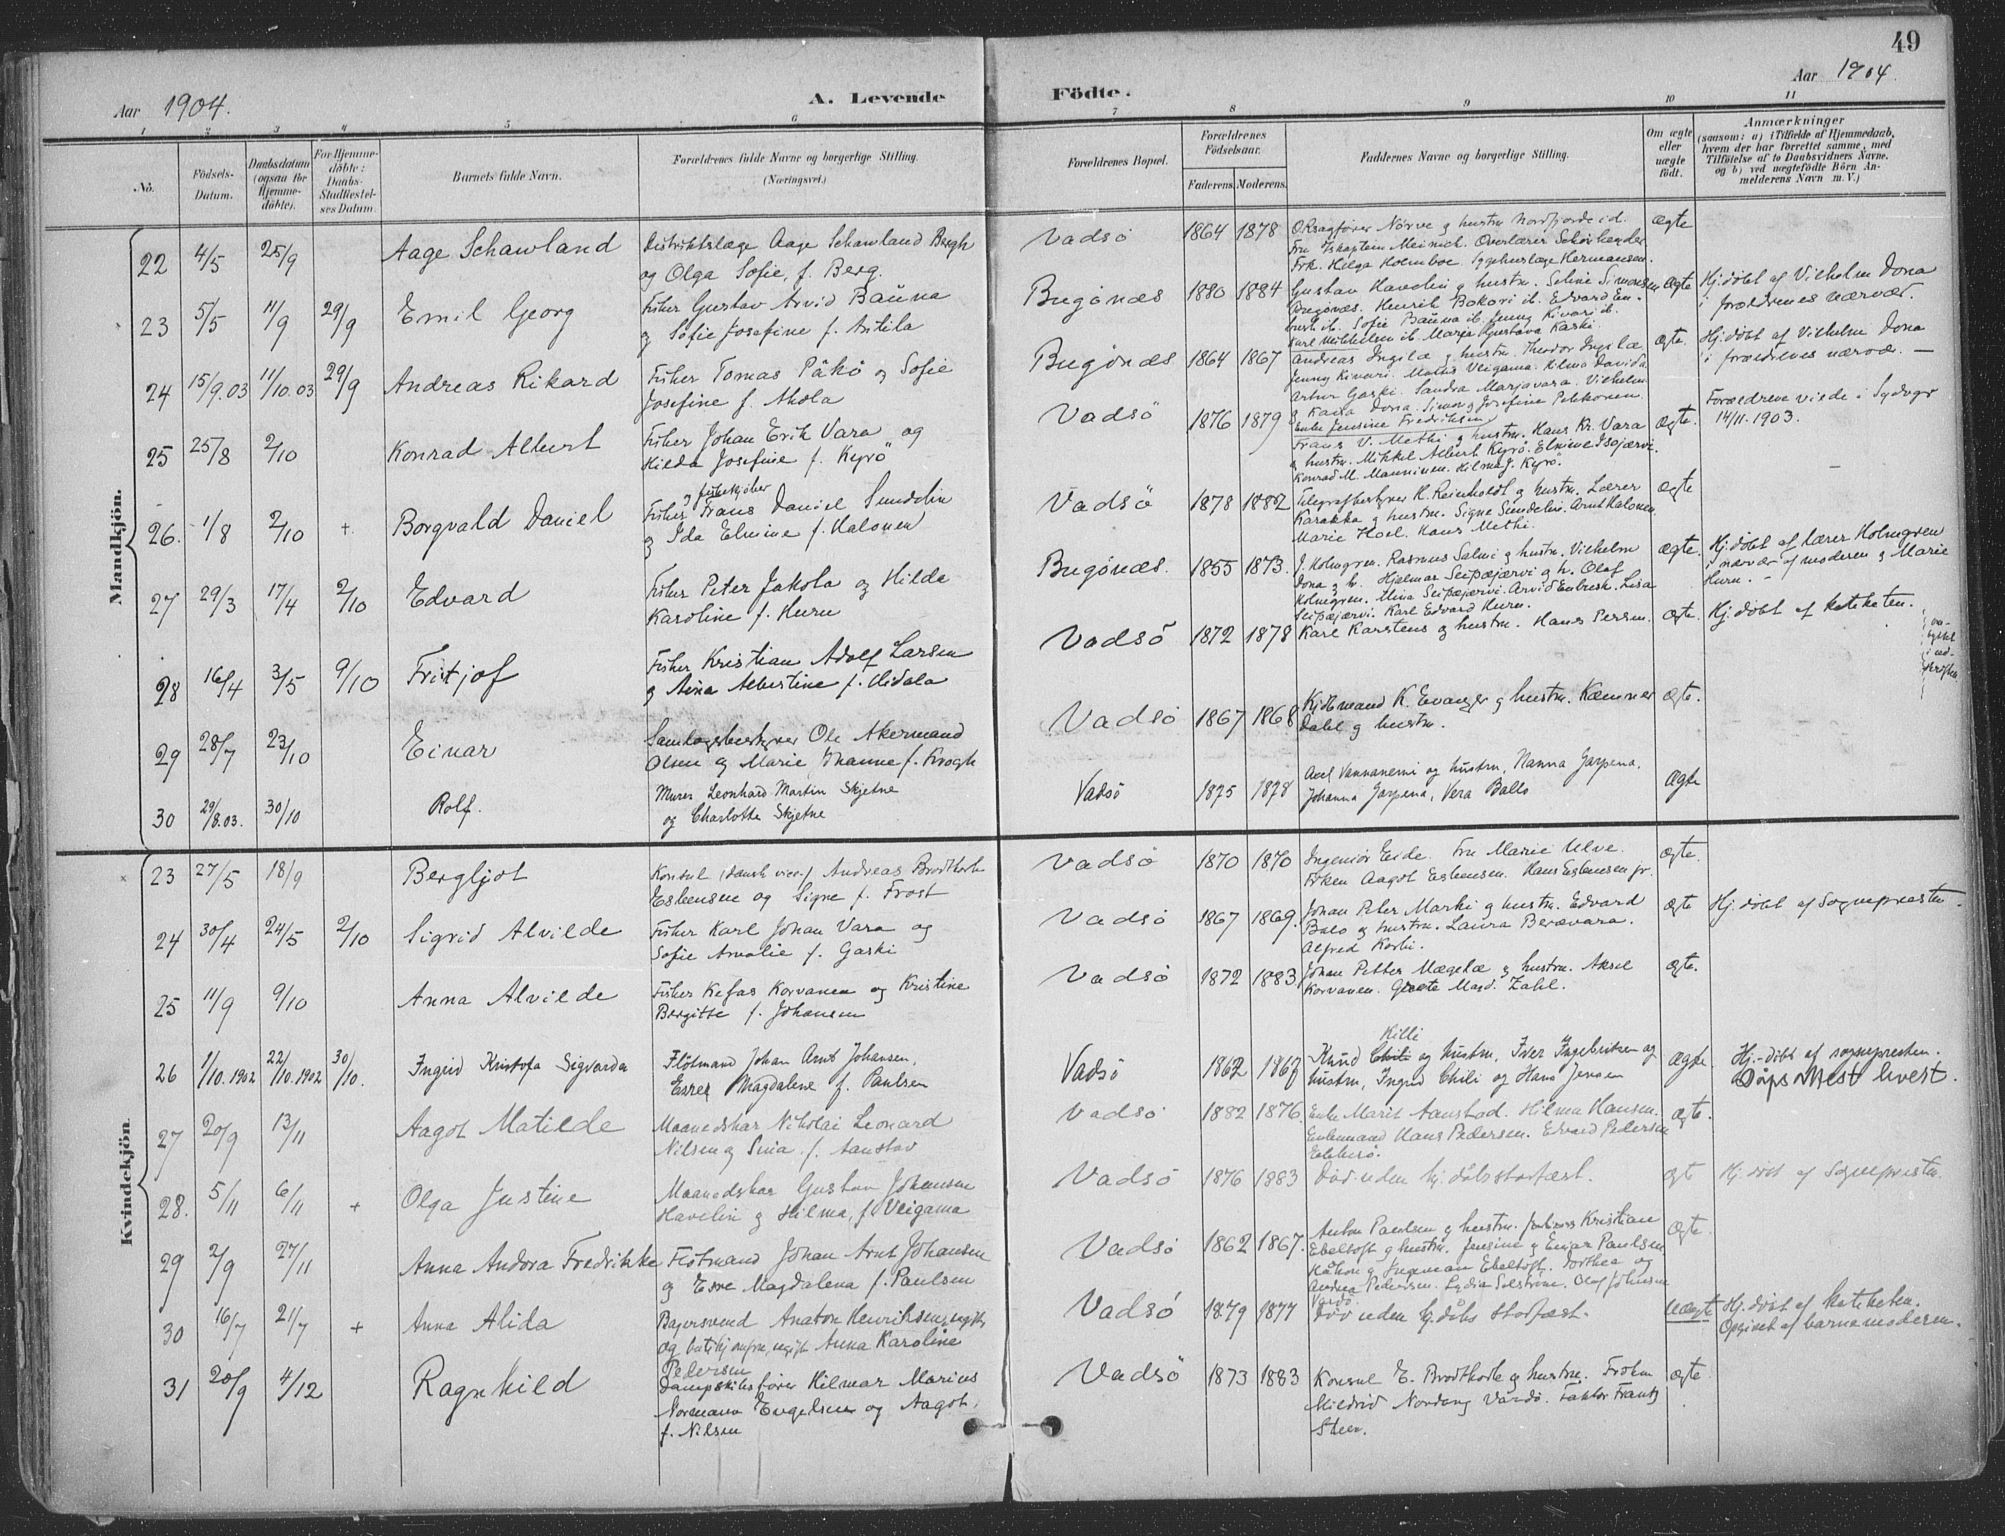 49
Aar 1904. A. Levende Fødte. Aar 1904.
1 2 3 4 5 6 7 8 9 10 11
No. Fødsels-Datum. Daabsdatum (ogsaa for Hjemme-døbte). For Hjemme-døbte: Daabs-Stadfæstel-ses Datum. Barnets fulde Navn. Forældrenes fulde Navne og borgerlige Stilling. (Næringsvei.) Forældrenes Bopæl. Forældrenes Fødselsaar. Faderens. Moderens. Faddernes Navne og borgerlige Stilling. Om ægte eller uægte født. Anmærkninger (saasom: a) i Tilfælde af Hjemmedaab, hvem der har forrettet samme, med Tilføielse af to Daabsvidners Navne, og b) ved uægtefødte Børn An-melderens Navn m. V.)
Mandkjön.
22 4/5 25/9 Aage Schawland Distriktslæge Aage Schawland Bergh
og Olga Sofie, f. Berg. Vadsö 1864 1878 O.Rsagfører Nörve g hustru
Frk. Helga Holmboe. Sygehuslæge Hermansen. ægte
23 5/5 11/9 29/9 Emil Georg Fisher Gustav Arvid Bauna
g Sofie Josefine f. Antila Bugönæs 1880 1884 Gustav Havelin g hustru. Seline Simonsen
Bugönæs. Henrik Bokori ib. Edvard
Sofie Bauna ib. Jenny Kivari ib.
Karl Mikkelsen ib. Maria Gustava Kaski ægte Hj. döbt af Vilhelm Dona
i forældrenes nærvær.
24 15/9.03 11/10.03 29/9 Andreas Rikard Fisher Tomas Päkö og Sofie
Josefine f. Akola Bugönæs 1864 1867 Andreas Ingelæ g hustru. Theodor Ingelæ
Jenny Kivari. Davida
Artur Gaski. Sandra Marjavara. Vilhelm
g Kaisa Dona. Simon g Josefine Pelkonen ægte. Hj. döbt af Vilhelm Dona
i forældrenes nærvæ. —
25 25/8 2/10 Konrad Albert Fisher Johan Erik Vara og
Hilda Josefine f. Kyrö Vadsö 1876 1879 Enke Jensine Fredriksen
Frans V. Methi g hustru. Hans Kr. Vara
g hustru. Mikkel Albert Kyrö. Elviine Isojærvi.
Konrad M. Manninen. Hilma J. Kyrö. ægte. Forældrene viede i Sydvgr
14/11. 1903.
26. 1/8 2/10 + Borgvald Daniel g fiskekjöber
Fisher Frans Daniel Sundelin
g Ida Elviine f. Halonen Vadsö 1878 1882 Telegrafbestyrer H. Reinholdt g hustru. Lærer
Karakka g hustru. Signe Sundelin. Arnt Halonen.
Marie Hoel. Hans Methi. ægte
27 29/3 17/4 2/10 Edvard Fisher Peter Jakola og Hilda
Karoline f. Huru Bugönæs. 1855 1873. J. Holmgren. Rasmus Salmi g hustru. Vilhelm
Dona g h. Hjalmar Seipæjærvi g h. Olaf
Holmgren. Mina Seipæjærvi. Arvid Enbusk. Lisa
Seipæjærvi. Karl Edvard Huru. ægte. Hj. döbt af lærer Holmgren
i nærvær af moderen g Marie
Huru. —
28 16/4 3/5 9/10 Fritjof Fisher Kristian Adolf Larsen
g Aina Albertine f. Hidala Vadsö 1872 1878 Karl Karstens g hustru. Hans Persen. ægte. Hj. döbt af kateketen.
29 28/7 23/10 Einar Samlagsbestyrer Ole Akermand
Olsen og Marie Johanne f. Krogh Vadsö 1867 1868 Kjöbmand K. Evanger g hustru. Kæmner
Dahl g hustru. ægte.
30 29/8.03. 30/10 Rolf. Murer Leonhard Martin Skjetne
og Charlotte Skjetne Vadsö 1875 1878 Axel Vannanemi og hustru, Nanna Jarpena,
Johanna Jarpena, Vera Ballo ægte
Kvindekjön.
23 27/5 18/9 Bergljot Konsul (dansk vice-) Andreas Brodtkorb
Esbensen og Signe f. Frost Vadsö 1870 1870 Ingeniör Eide. Fru Marie Ulve.
Fröken Aagot Esbensen. Hans Esbensen jr. ægte.
24 30/4 24/5 2/10 Sigrid Alvilde Fisher Karl Johan Vara og
Sofie Amalie f. Gaski Vadsö 1867 1869. Johan Peter Marki g hustru. Edvard
Balo g hustru. Laura Berævara.
Alfred Korbi. ægte Hj. döbt af Sognepresten.
25 11/9 9/10 Anna Alvilde Fisher Kefas Korvanen og Kristine
Bergitte f. Johansen Vadsö 1872 1883 Johan Petter Mægelæ g hustru. Aksel
Korvanen. Grete Magd. Zahl. ægte.
26 1/10.1902 22/10.1902 30/10. Ingrid Kristofa Sigvarda Flötmand Johan Arnt Johansen.
Esther Magdalene f. Paulsen Vadsö 1862 1867 Killi
Knud Chili og hustru, Iver Ingebritsen og
hustru, Ingrid Chili og Hans Jensen ægte. Hj.-döbt af sognepresten.
Dåps attest levert.
27 20/9 13/11 Aagot Matilde Maanedskar Nikolai Leonard
Nilsen g Sina f. Aanstad Vadsö 1882 1876. Enke Marit Aanstad. Hilma Hansen.
Enkemand Hans Pedersen. Edvard Pedersen
Ekkerö. ægte.
28. 5/11 6/11 + Olga Justine Maanedskar Gustav Johansen
Havelin g Hilma, f. Veigama Vadsö 1876 1883 Död uden hj. daabs stadfæst. ægt Hj. döbt af Sognepresten.
29 2/9 27/11 Anna Andora Fredrikke Flötmand Johan Arnt Johansen
g Esne Magdalena f. Paulsen Vadsö 1862 1867. Anton Paulsen g hustru. Kristian
Ebeltoft g hustru. Jensine g Einar Paulsen
Håkon g Ingeman Ebeltoft. Dorthea og
Andrea Pedersen. Lydia Selström. Olaf Johnsen
Vardö. ægte.
30 16/7 21/7 + Anna Alida Bagersvend Anaton Henriksen, ugift
og butikjomfru, ugift Anna Karoline
Pedersen Vadsö 1879 1877 Död uden hj. dåbs stadfæst. uægte Hj. döbt af kateketen.
Opgivet af barnemoderen.
31 20/9 4/12 Ragnhild Dampskibsfører Hilmar Marius
Normann Engelsen og Aagot,
f. Nilsen Vadsö 1873 1883 Konsul E. Brodtkorb g hustru. Fröken
Mildrid Nordang Vardö. Faktor Frantz
Steen. ægte.